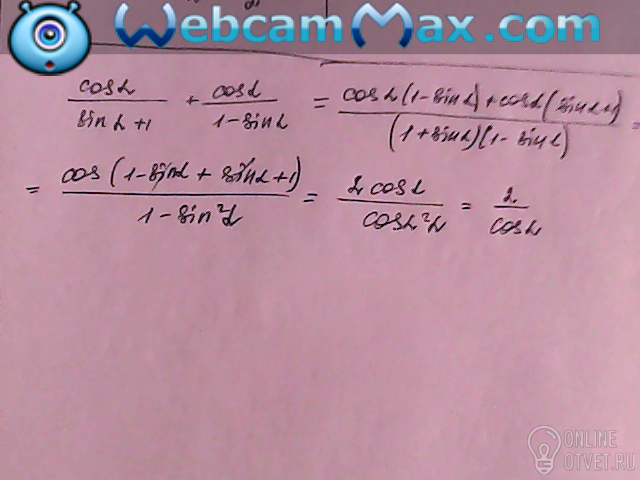 WebcamMax.com
cosα/(sinα+1) + cosα/(1-sinα) = (cosα(1-sinα)+cosα(sinα+1))/((1+sinα)(1-sinα)) =
= cos(1-sinα+sinα+1)/(1-sin²α) = 2cosα/cos²α = 2/cosα
ONLINE
OTVET.RU